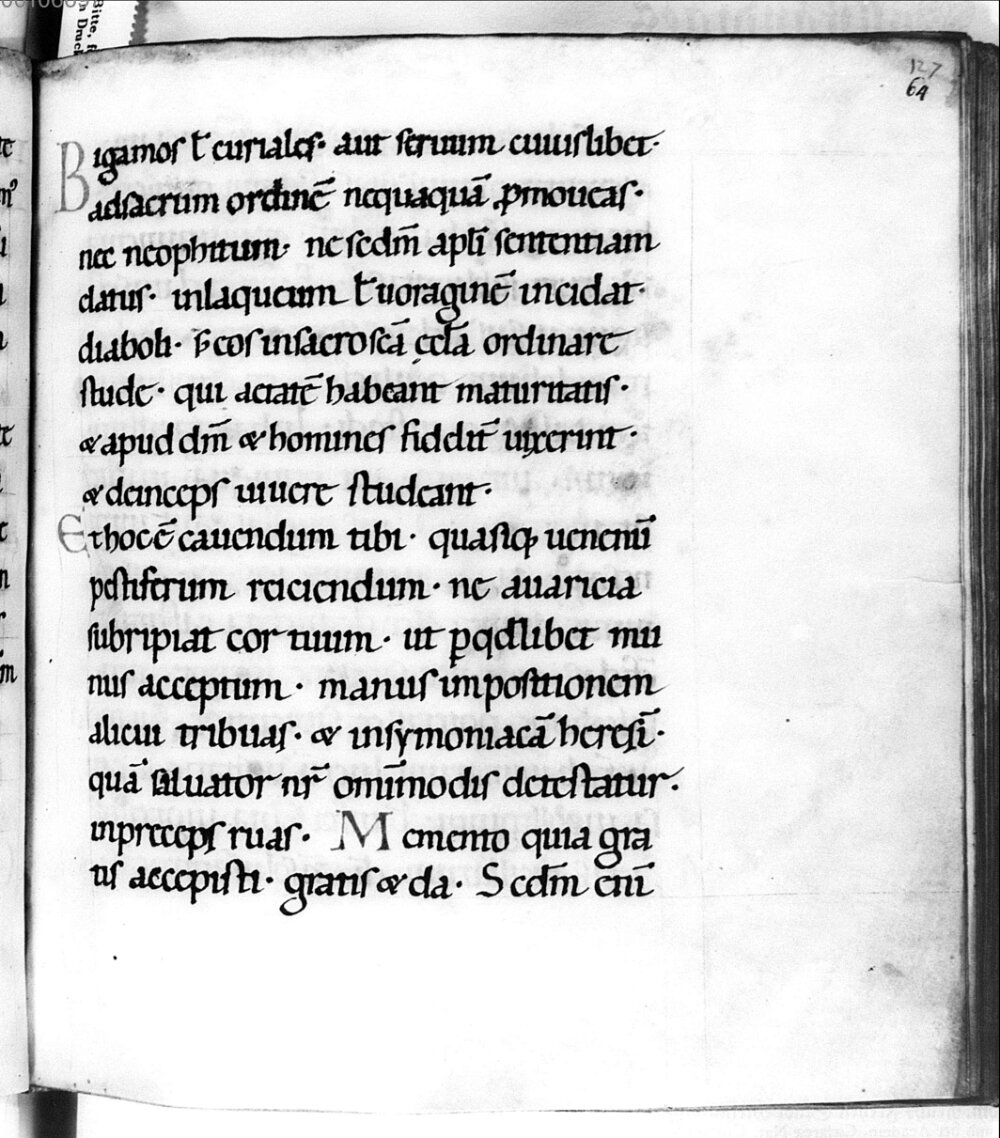 127
64
Bigamos ł curiales· aut seruum cuiuslibet·
adsacrum ordinē nequaquā ꝓmoueas·
nec neophitum· ne scdm̄ apłi sententiam
datus· inlaqueum ł uoraginē incidat·
diaboli· s; eos insacroscā ęcclā ordinare
stude· qui aetatē habeant maturitatis·
& apud dm̄ & homines fidelit̄ uixerint·
& deinceps uiuere studeant·
Et hoc ē cauendum tibi· quasiq; uenenū
pestiferum reiciendum· ne auaricia
subripiat cor tuum· ut p̱ qđlibet mu
nus acceptum· manus impositionem
alicui tribuas· & insymoniacā heresī·
quā saluator nr̄ omīmodis detestatur·
inpreceps ruas· Memento quia gra
tis accepisti· gratis & da· Scdm̄ enī